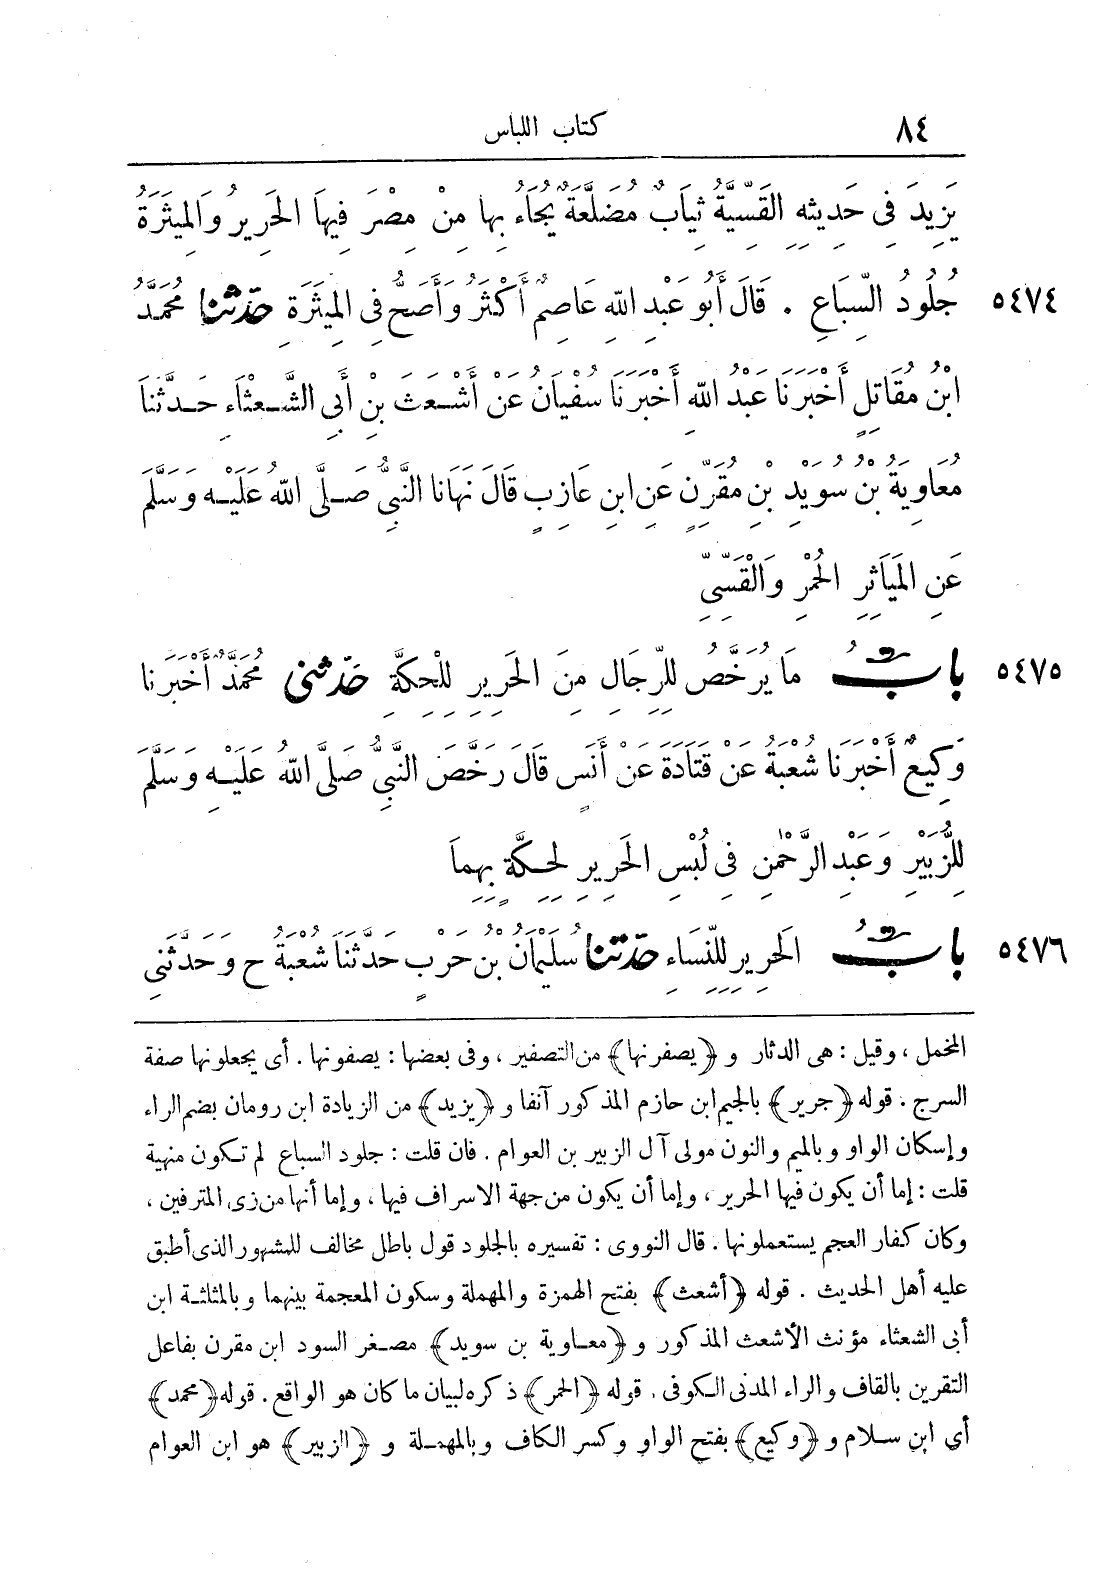 ٨٤ كتاب اللباس
يَزِيدَ فِى حَدِيثِهِ القَسِّيَّةُ ثِيَابٌ مُضَلَّعَةٌ يُجَاءُ بِهَا مِنْ مِصْرَ فِيهَا الحَرِيرُ وَالمِيثَرَةُ
٥٤٧٤ جُلُودُ السِّبَاعِ . قَالَ أَبُو عَبْدِ اللهِ عَاصِمٌ أَكْثَرُ وَأَصَحُّ فِى المِيثَرَةِ حَدّثنا مُحَمَّدُ
ابْنُ مُقَاتِلٍ أَخْبَرَنَا عَبْدُ اللهِ أَخْبَرَنَا سُفْيَانُ عَنْ أَشْعَثَ بْنِ أَبِى الشَّعْثَاءِ حَدَّثَنَا
مُعَاوِيَةُ بْنُ سُوَيْدِ بْنِ مُقَرِّنٍ عَنِ ابنِ عَازِبٍ قَالَ نَهَانَا النَّبِىُّ صَلَّى اللهُ عَلَيْهِ وَسَلَّمَ
عَنِ المَيَاثِرِ الحُمْرِ وَالْقَسِّىِّ
٥٤٧٥ بابُ مَا يُرَخَّصُ لِلرِّجَالِ مِنَ الحَرِيرِ لِلْحِكَّةِ حَدّثنى مُحَمَّدٌ أَخْبَرَنَا
وَكِيعٌ أَخْبَرَنَا شُعْبَةُ عَنْ قَتَادَةَ عَنْ أَنَسٍ قَالَ رَخَّصَ النَّبِىُّ صَلَّى اللهُ عَلَيْهِ وَسَلَّمَ
لِلزُّبَيْرِ وَعَبْدِ الرَّحْمٰنِ فِى لُبْسِ الحَرِيرِ لِحِكَّةٍ بِهِمَا
٥٤٧٦ بابُ الحَرِيرِ لِلنِّسَاءِ حَدّثنا سُلَيْمَانُ بْنُ حَرْبٍ حَدَّثَنَا شُعْبَةُ ح وَحَدَّثَنِى
المخمل ، وقيل : هى الدثار و ﴿يصفرنها﴾ من التصفير ، وفى بعضها : يصفونها . أى يجعلونها صفة
السرج . قوله ﴿جرير﴾ بالجيم ابن حازم المذكور آنفا و ﴿يزيد﴾ من الزيادة ابن رومان بضم الراء
وإسكان الواو وبالميم والنون مولى آل الزبير بن العوام . فان قلت : جلود السباع لم تكون منهية
قلت : إما أن يكون فيها الحرير ، وإما أن يكون من جهة الاسراف فيها ، وإما أنها من زى المترفين ،
وكان كفار العجم يستعملونها . قال النووى : تفسيره بالجلود قول باطل مخالف للمشهور الذى أطبق
عليه أهل الحديث . قوله ﴿أشعث﴾ بفتح الهمزة والمهملة وسكون المعجمة بينهما وبالمثلثة ابن
أبى الشعثاء مؤنث الأشعث المذكور و ﴿معاوية بن سويد﴾ مصغر السود ابن مقرن بفاعل
التقرين بالقاف والراء المدنى الكوفى . قوله ﴿الحمر﴾ ذكره لبيان ما كان هو الواقع . قوله ﴿محمد﴾
أي ابن سلام و ﴿وكيع﴾ بفتح الواو وكسر الكاف وبالمهملة و ﴿الزبير﴾ هو ابن العوام